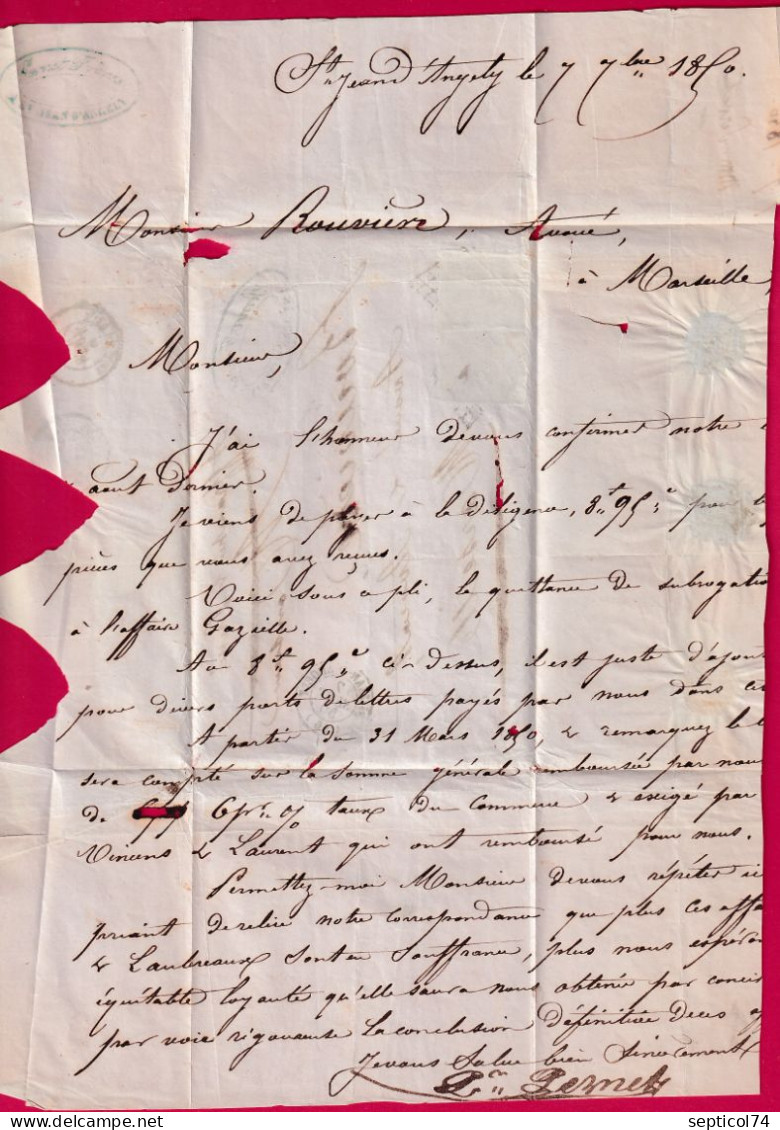 St Jean d'Angely le 7 7bre 1850.
Monsieur Rouvière, Avoué,
à Marseille,
Monsieur,
J'ai l'honneur de vous confirmer notre
aout dernier.
Je viens de payer à la diligence, 8f 95c pour
pièces que vous avez reçues.
Voici sous ce pli, la quittance de subrogatio
à l'affaire Gazielle.
Au 8f 95c ci-dessus, il est juste d'ajou
pour divers ports de lettres payés par nous dans ces
A partir du 31 Mars 1850, & remarquez le
sera compté sur la somme générale remboursée par nous
de 6 pr. % taux du commerce & exigé par
Vincens & Laurent qui ont remboursé pour nous.
Permettez-moi Monsieur de vous répéter
priant de relire notre correspondance que plus ces affa
& Laubreaux sont en souffrance, plus nous espéron
équitable loyauté qu'elle saura nous obtenir par concil
par voie rigoureuse la conclusion définitive de ces
Je vous salue bien sincèrement
Pernet
ST JEAN D'ANGELY
septicol74
DELCAMPE.NET